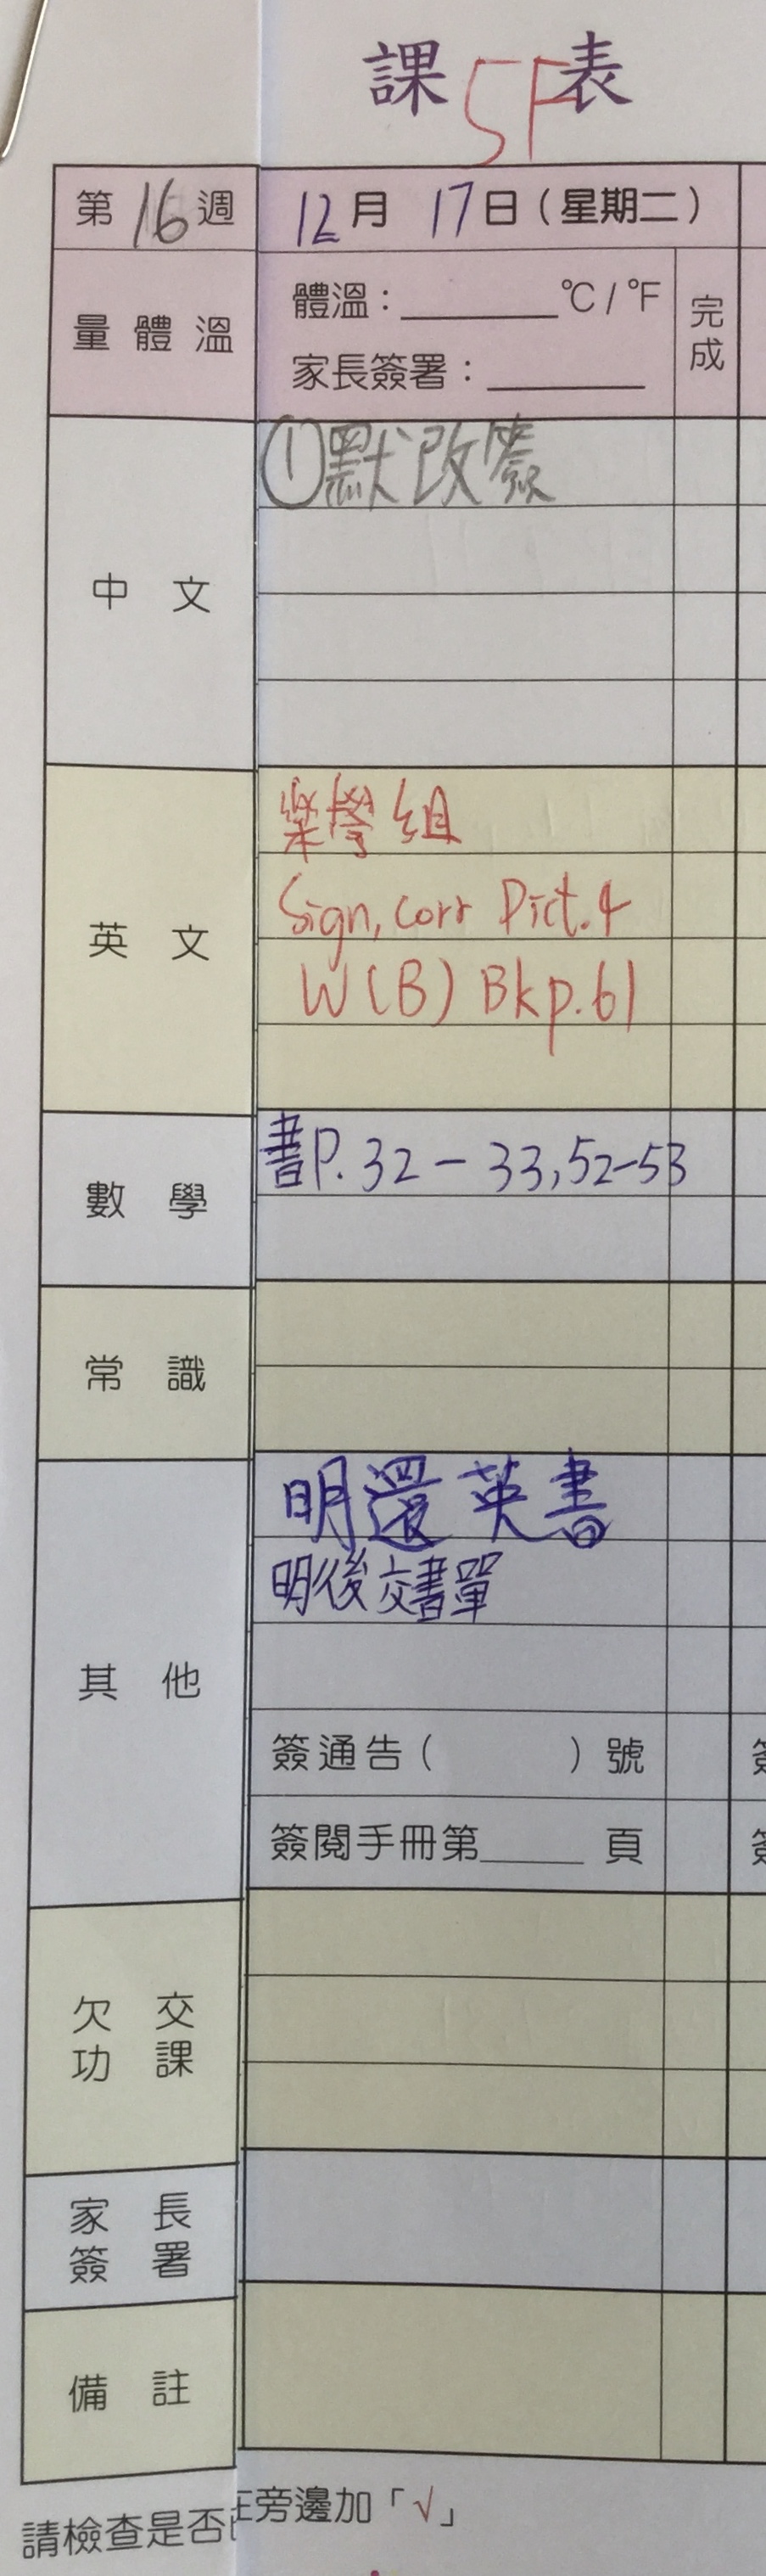 課 5F 表
第 16 週
12 月 17 日 ( 星期二 )
量 體 溫
體溫：________ ℃ / ℉
家長簽署：________
完成
中 文
① 默改簽
英 文
樂學組
Sign, corr Dict. 4
W (B) Bk p. 61
數 學
書 P. 32 - 33, 52-53
常 識
其 他
明還英書
明後交書單
簽通告 ( ) 號
簽閱手冊第______ 頁
欠 交
功 課
家 長
簽 署
備 註
請檢查是否
在旁邊加「√」